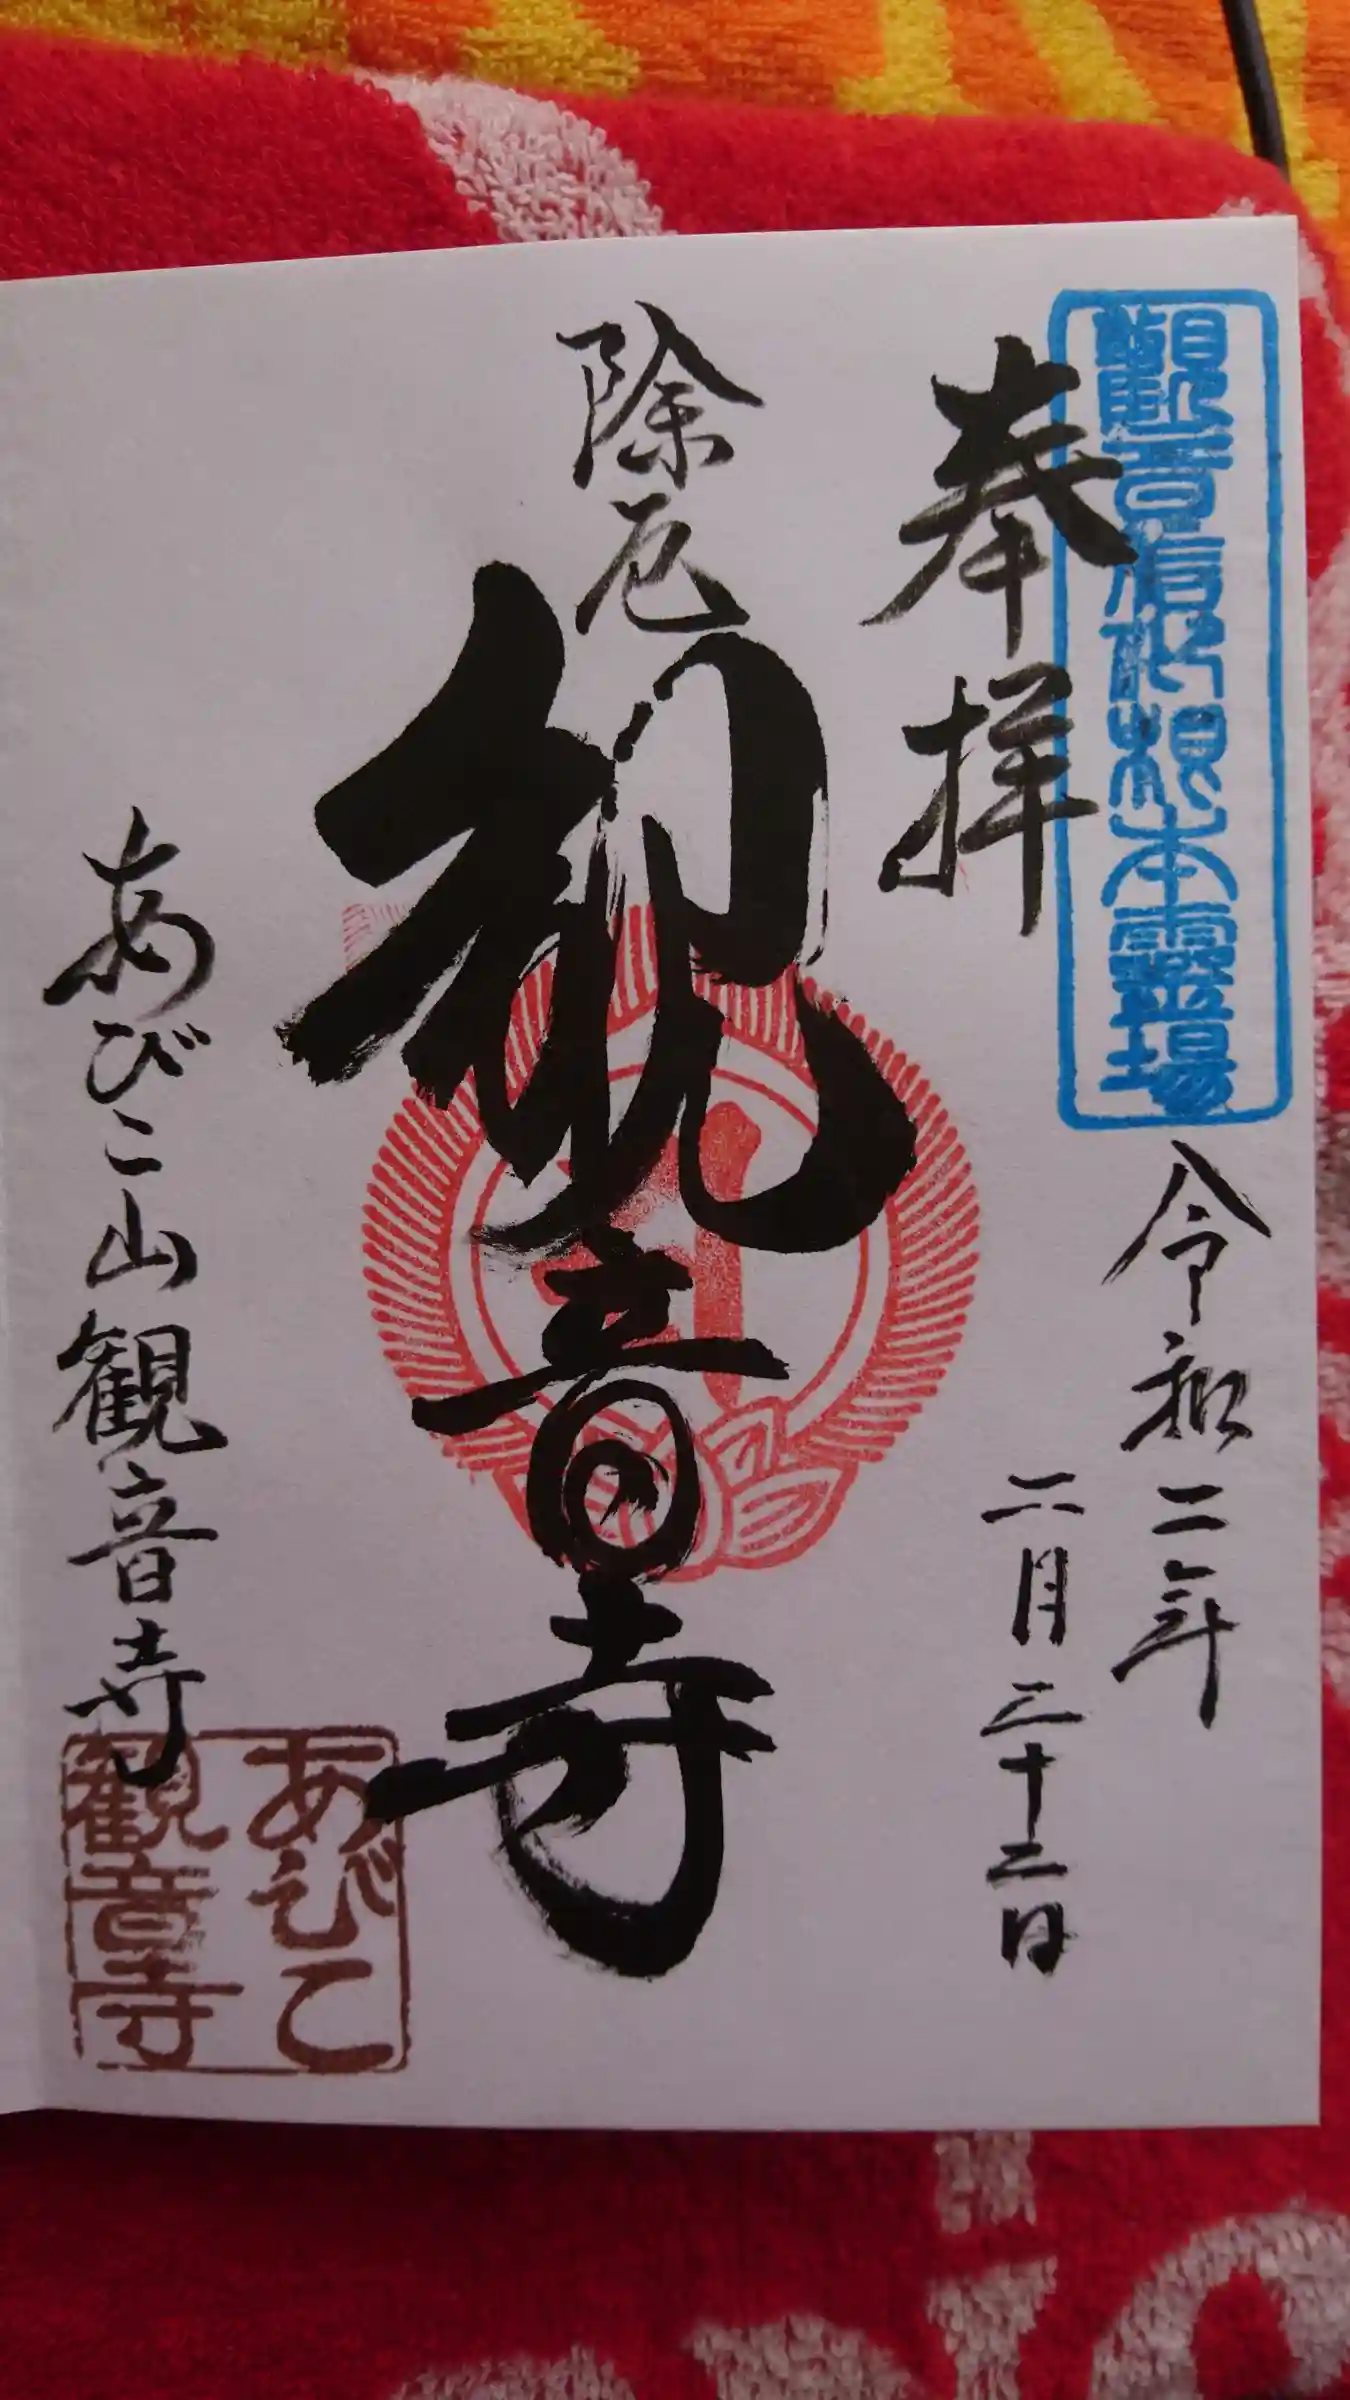 観音信仰根本霊場
奉拝
令和二年
二月二十二日
除厄
観音寺
あびこ山観音寺
あびこ
観音寺